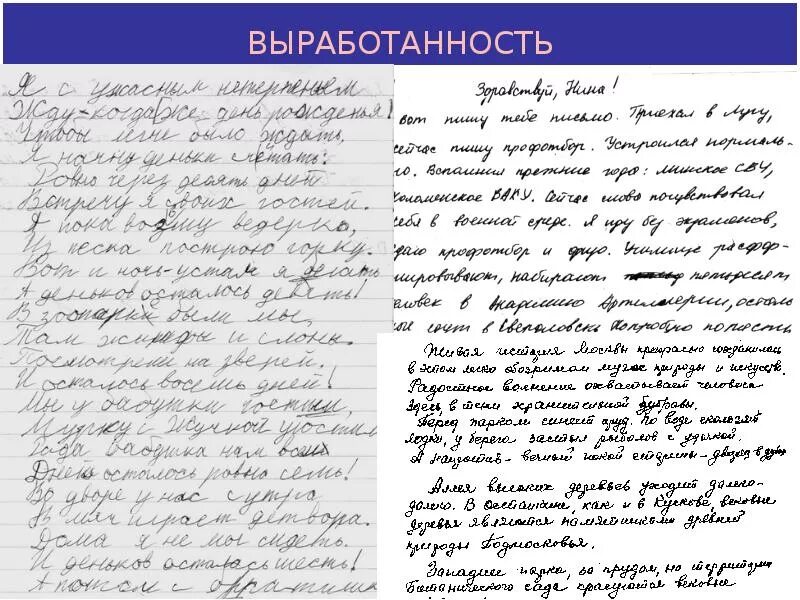 ВЫРАБОТАННОСТЬ
Я с ужасным нетерпеньем
Жду-когда же день рожденья!
Чтобы легче было ждать,
Я начну деньки считать.
Ровно через десять дней
Встречу я своих гостей.
Я пока возьму ведерко,
Из песка построю горку.
Вот и ночь-устал я делать
А деньков осталось девять!
В зоопарке были мы,
Там жирафы и слоны.
Посмотрели на зверей.
И осталось восемь дней!
Мы у бабушки гостили,
Мурку с Жучкой угостили
бабушка нам
День осталось ровно семь!
Во дворе у нас с утра
В мяч играет детвора.
Дома я не мог сидеть.
И деньков осталось шесть!
А потом с братишка
Здравствуй, Нина!
вот пишу тебе письмо. Приехал в Лугу,
сейчас пишу профотбор. Устроился нормаль-
го. Вспомнил прежние года: минское СВУ,
коломенское ВАКУ. Сейчас снова почувствовал
себя в военной среде. Я иду без экзаменов,
сдаю профотбор и физо. Училище расфор-
мировывают, набирают пятьдесят
человек в Академию Артиллерии, осталь
ные едут в Свердловск. Попробую попасть
Живая история Москвы прекрасно сохранилась
в этом легко обозримом музее природы и искусств.
Радостное волнение охватывает человека
здесь, в тени хранительной дубравы.
Перед парком синеет пруд. По воде скользят
лодки, у берега застыл рыболов с удочкой.
А напротив - вечный покой старины - дворец в
Аллея высоких деревьев уходит далеко-
далеко. В Останкине, как и в Кускове, вековые
деревья являются памятниками древней
природы Подмосковья.
Западнее парка, за прудом, на территории
Ботанического сада красуются вековые